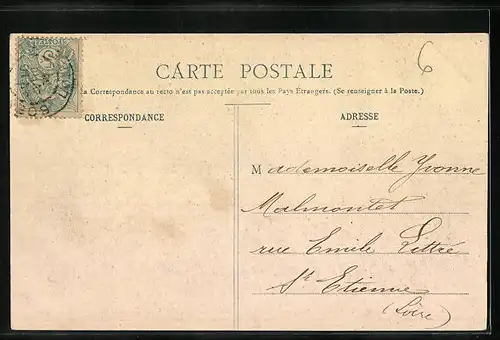 6
CARTE POSTALE
la Correspondance au recto n'est pas acceptée par tous les Pays Étrangers. (Se renseigner à la Poste.)
CORRESPONDANCE
ADRESSE
Mademoiselle Yvonne
Malmontet
rue Emile Littré
St Etienne
(Loire)